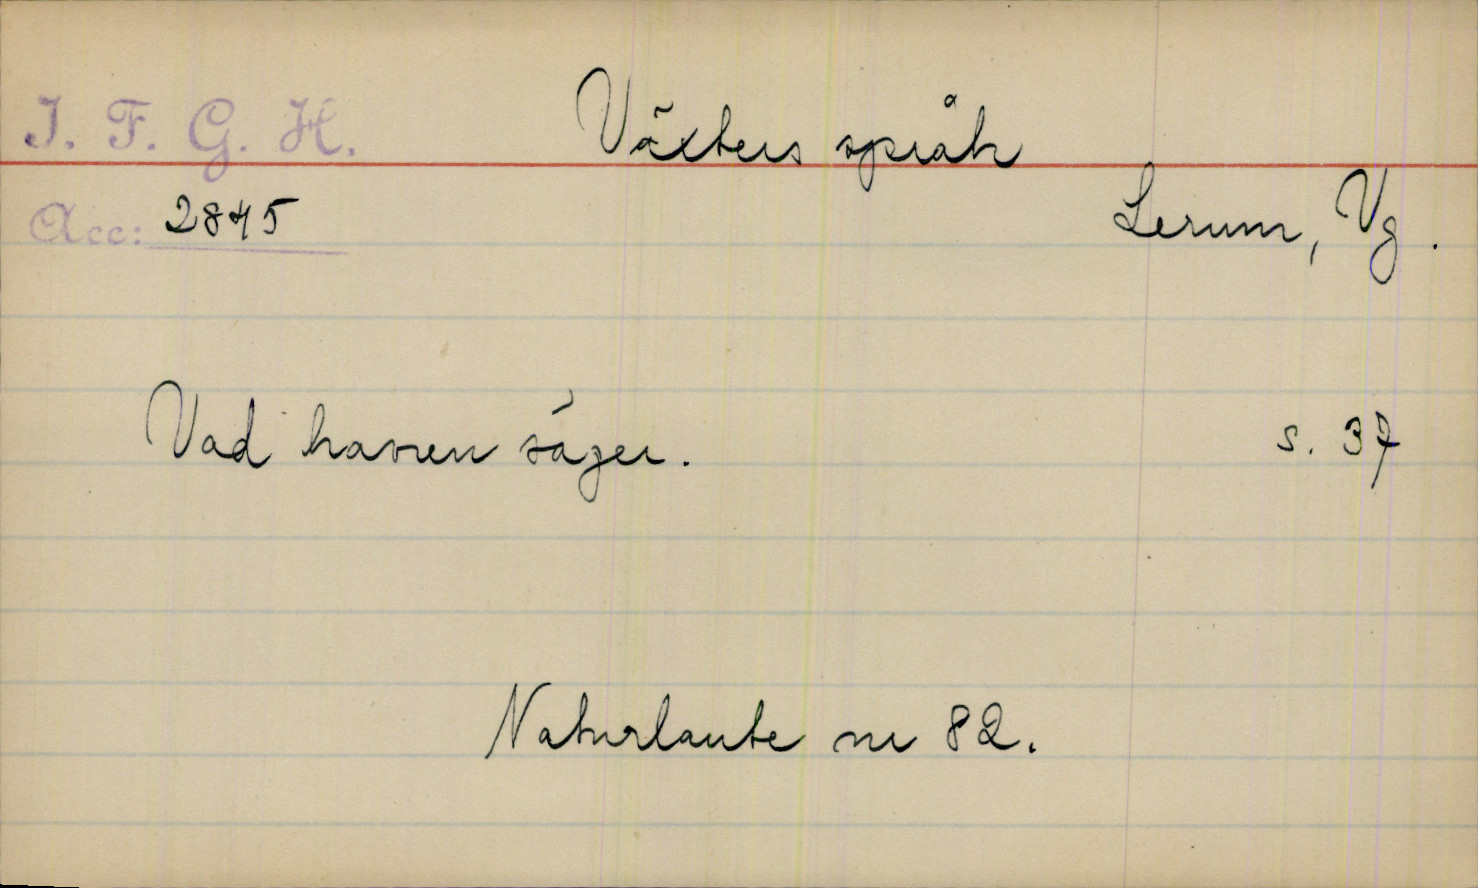 I. F. G. H.
Växters språk
Acc: 2845
Lerum, Vg.
Vad havren säger.
s. 37
Naturlaute nr 82.